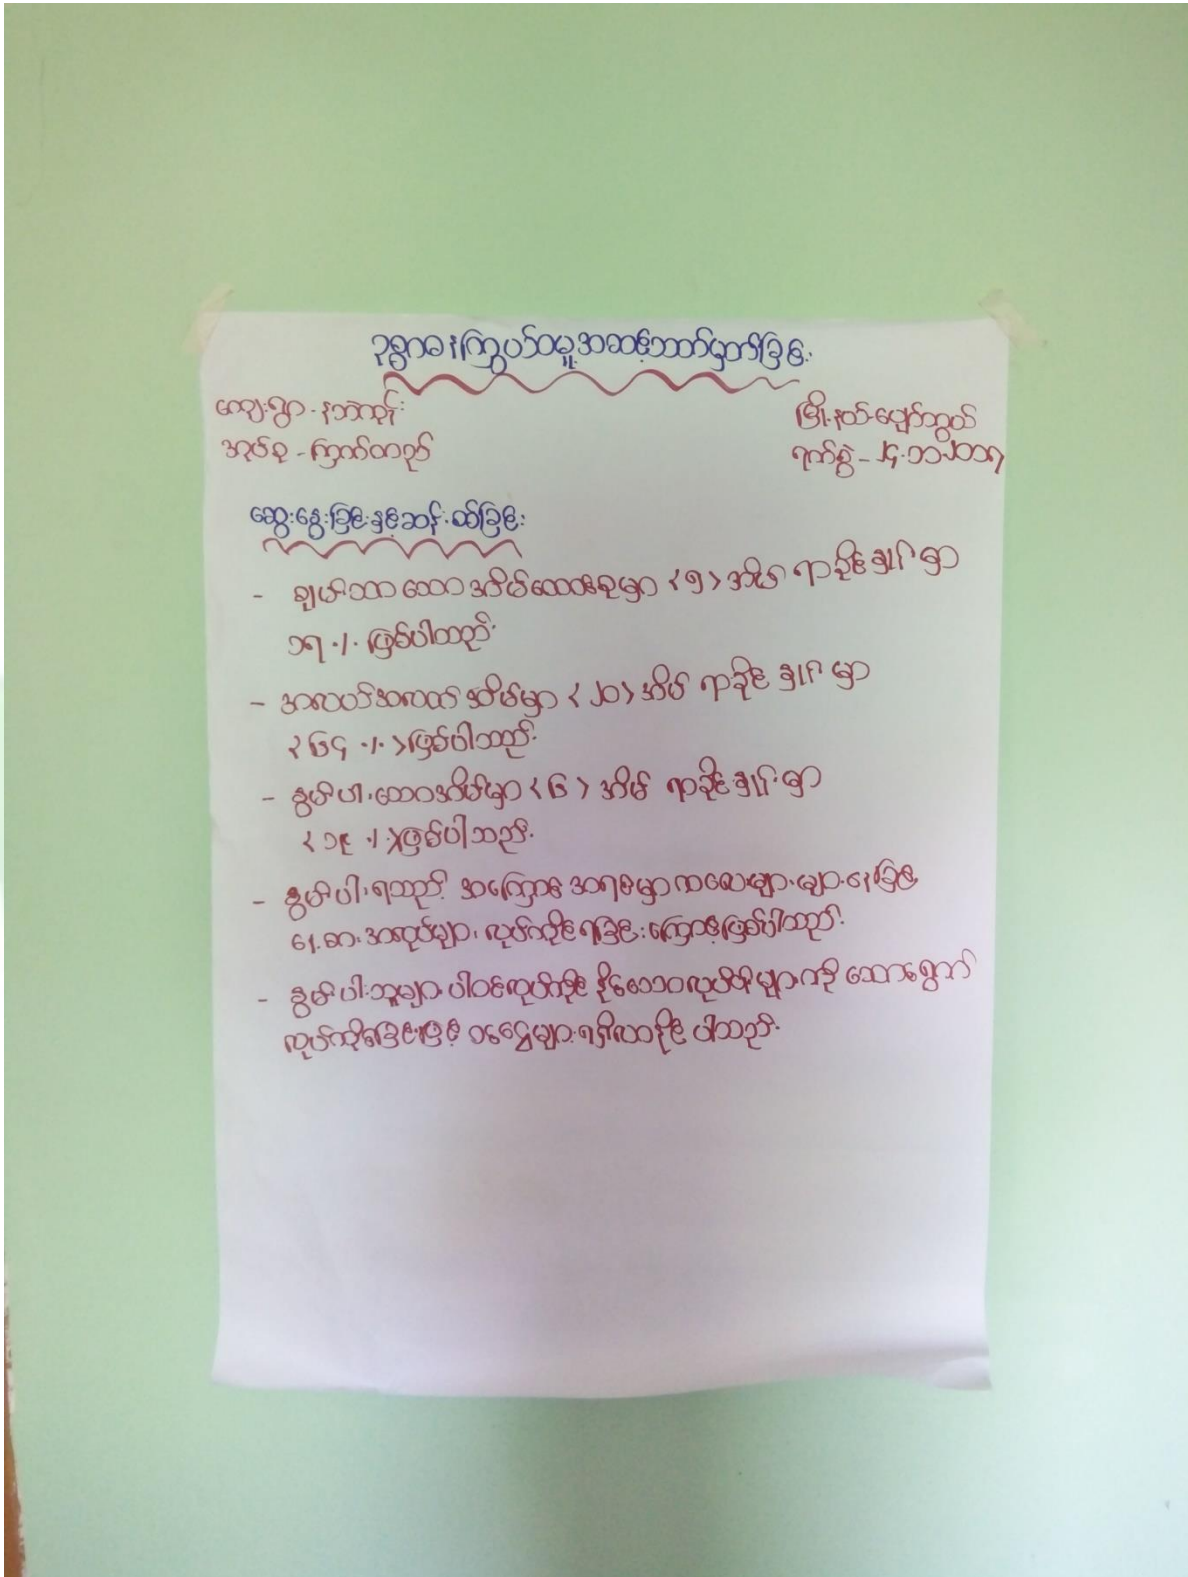 ဥစ္စာဓနကြွယ်ဝမှု့အဆင့်သတ်မှတ်ခြင်း
ကျေးရွာ - နဘဲကုန်း
အုပ်စု - ကြက်တညင်
မြို့နယ်-ပျော်ဘွယ်
ရက်စွဲ - ၂၄.၁၁.၂၀၁၇
ဆွေးနွေးခြင်းနှင့်ဆန်းစစ်ခြင်း
- ချမ်းသာသော အိမ်ထောင်စုမှာ <၅> အိမ် ရာခိုင်နှုန်းမှာ
၁၇ ./. ဖြစ်ပါသည်.
- အလယ်အလတ် အိမ်မှာ <၂၀> အိမ် ရာခိုင်နှုန်းမှာ
<၆၄ ./.>ဖြစ်ပါသည်.
- နွမ်းပါးသောအိမ်မှာ <၆> အိမ် ရာခိုင်နှုန်းမှာ
<၁၉ ./.>ဖြစ်ပါသည်.
- နွမ်းပါးရသည့် အကြောင်းအရင်းမှာ ကလေးများ များနေခြင်း
နေ့စားအလုပ်များ လုပ်ကိုင်ရခြင်းကြောင့်ဖြစ်ပါသည်.
- နွမ်းပါးသူများ ပါဝင်လုပ်ကိုင်နိုင်သောလုပ်ငန်းများကို ဆောင်ရွက်
လုပ်ကိုင်ခြင်းဖြင့် ဝင်ငွေများ ရရှိလာနိုင်ပါသည်.